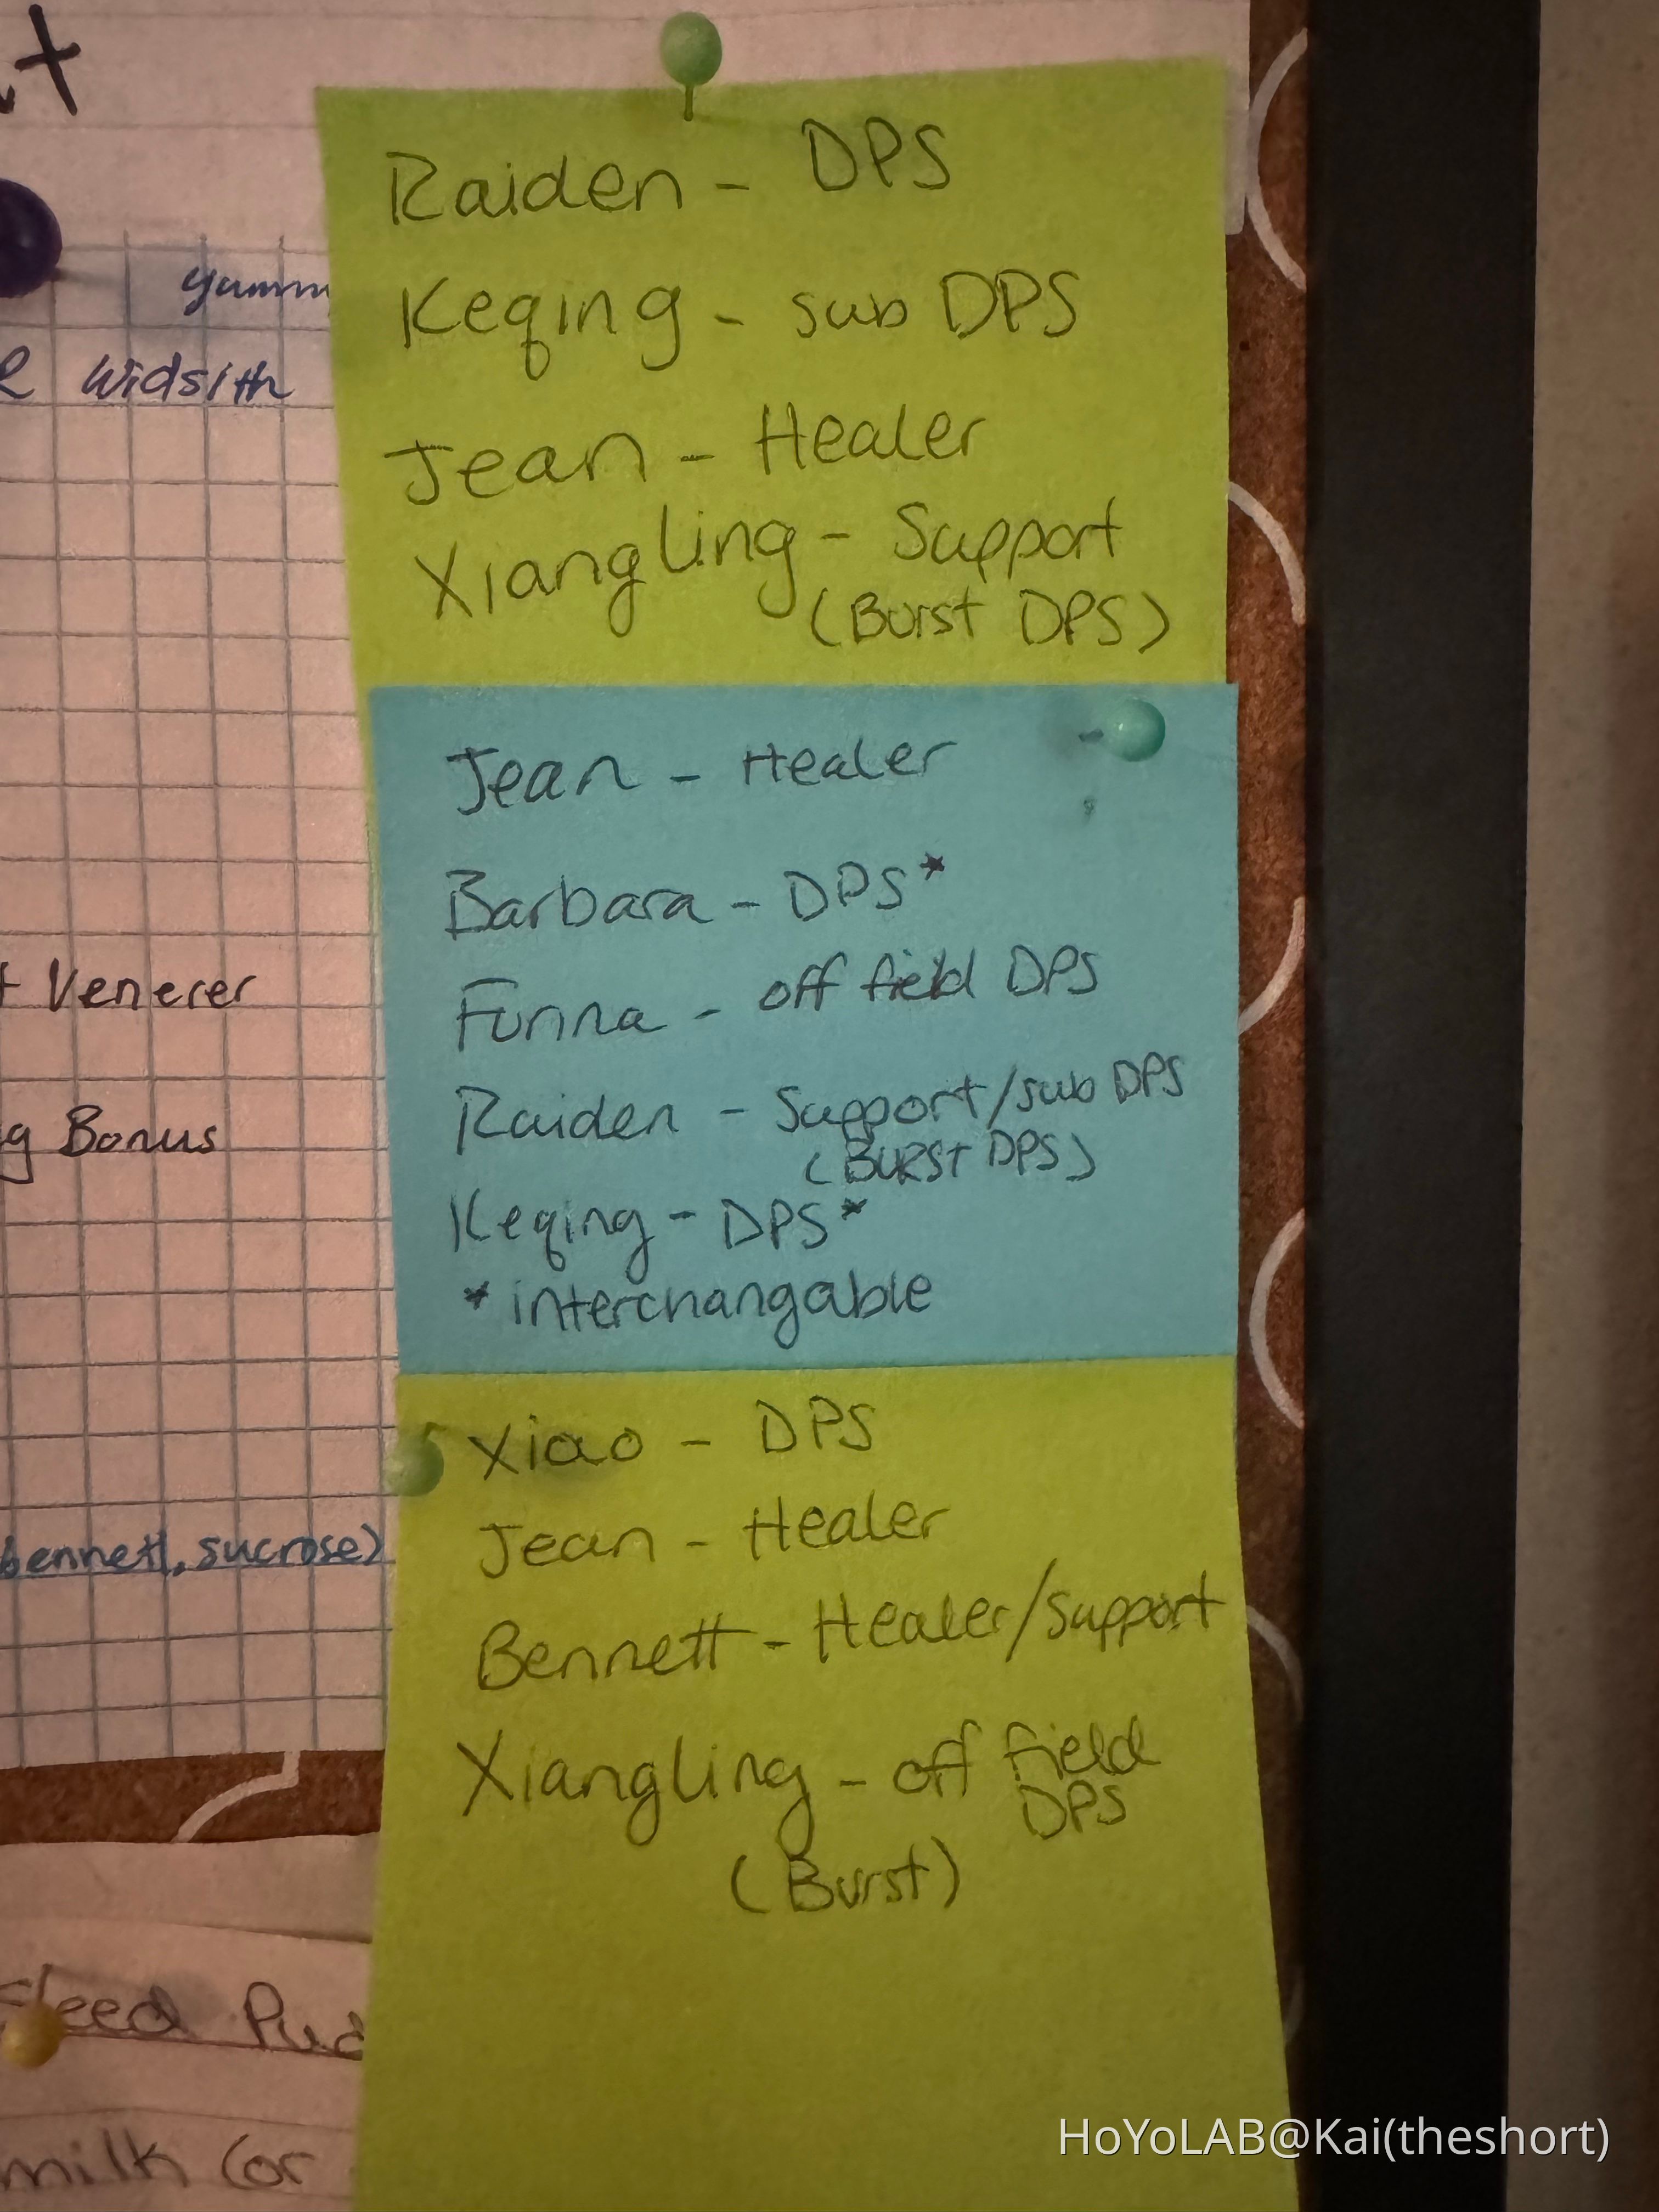 yumm
Widsith
Venerer
Bonus
bennett, sucrose)
milk (or
Raiden - DPS
Keqing - sub DPS
Jean - Healer
Xiangling - Support
(Burst DPS)
Jean - Healer
Barbara - DPS*
Furina - off field DPS
Raiden - Support/sub DPS
(BURST DPS)
Keqing - DPS*
* interchangable
Xiao - DPS
Jean - Healer
Bennett - Healer/Support
Xiangling - off field
DPS
(Burst)
HoYoLAB@Kai(theshort)